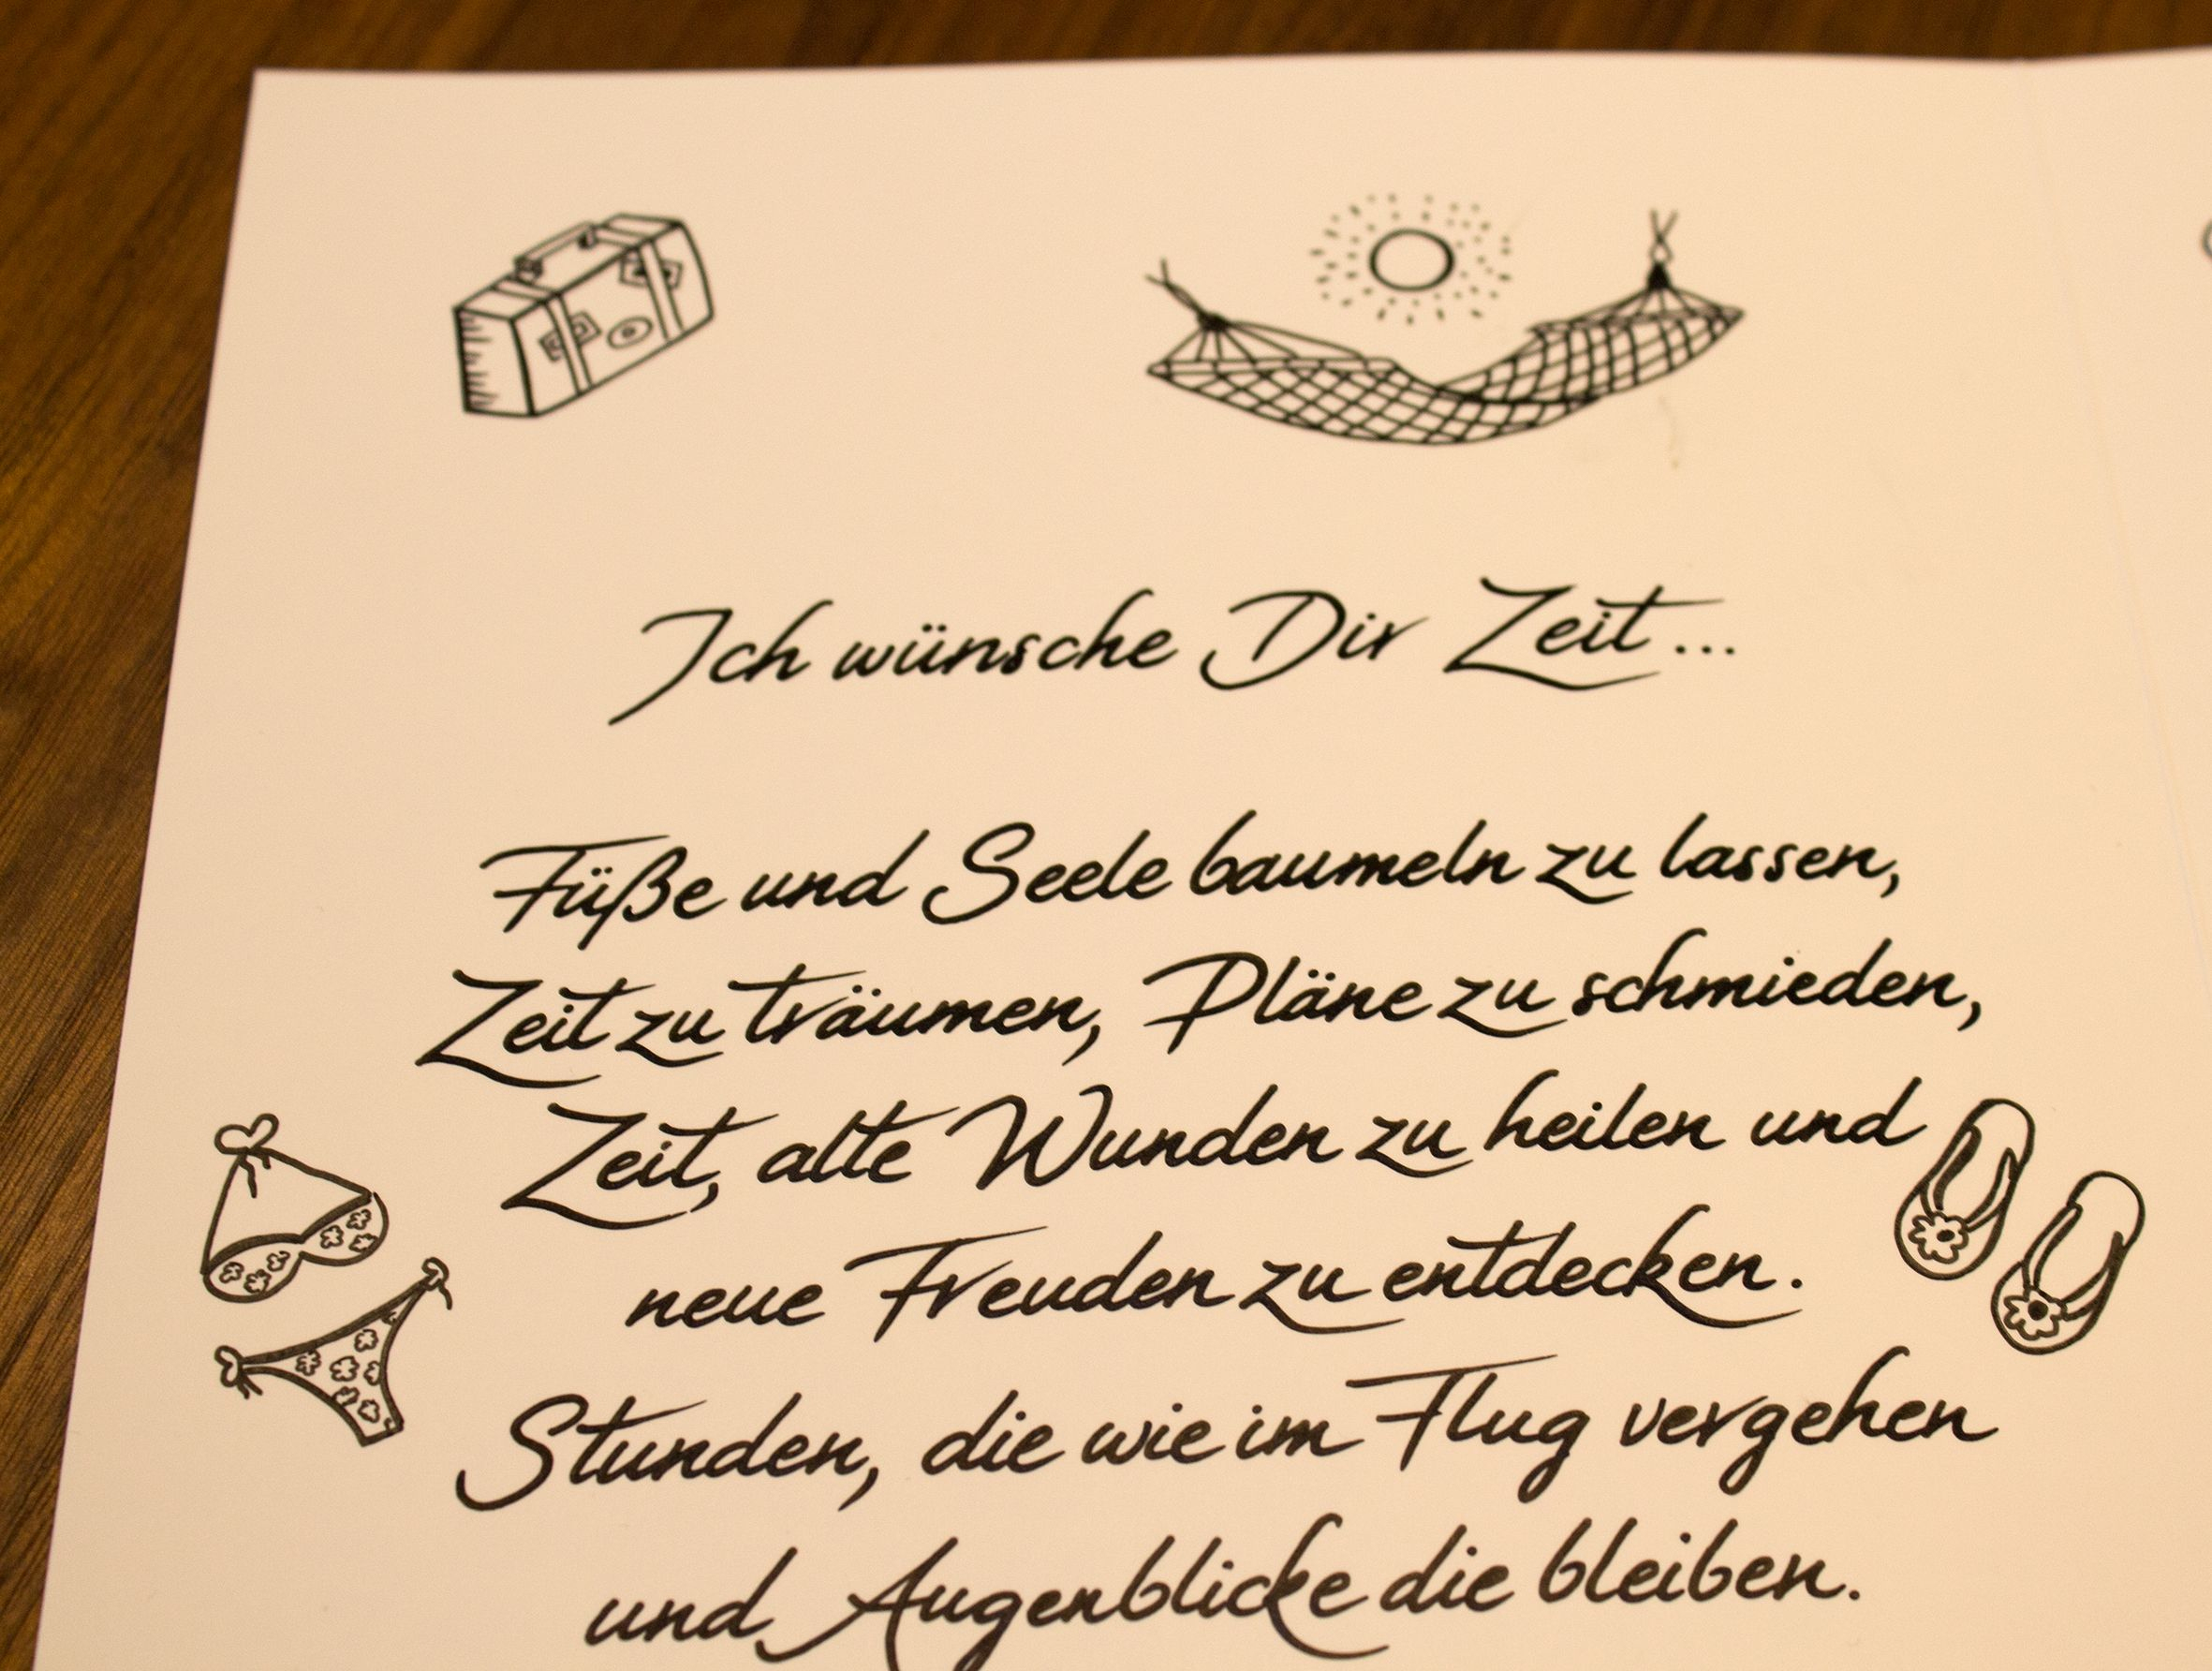 Ich wünsche Dir Zeit...
Füße und Seele baumeln zu lassen,
Zeit zu träumen, Pläne zu schmieden,
Zeit, alte Wunden zu heilen und
neue Freuden zu entdecken.
Stunden, die wie im Flug vergehen
und Augenblicke die bleiben.